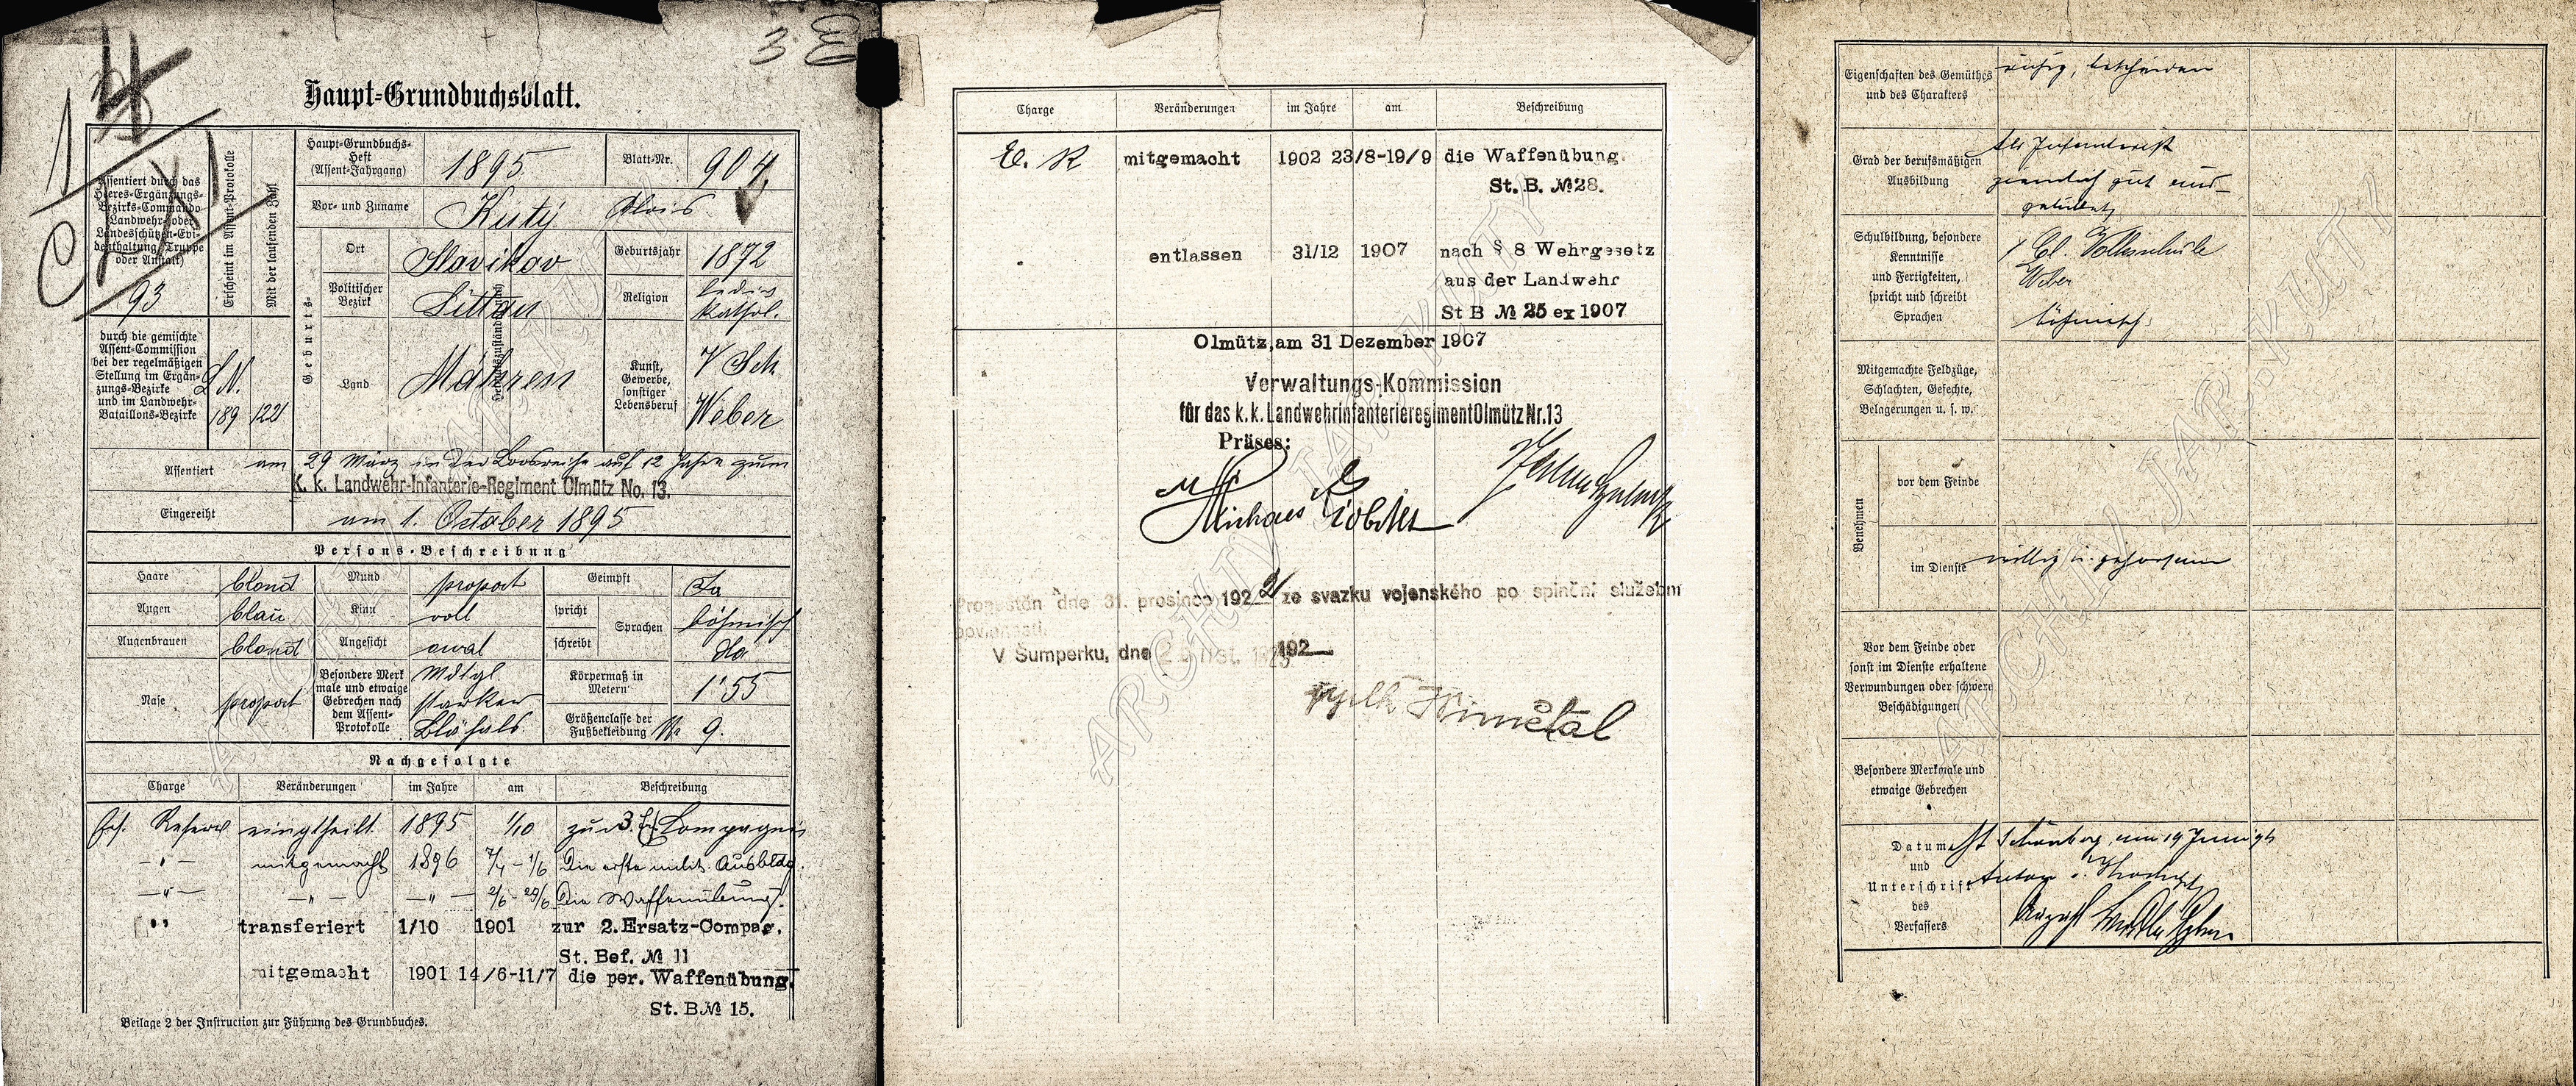 3
Haupt=Grundbuchsblatt.
93
Assentiert durch das Heeres=Ergänzungs=Bezirks=Commando Landwehr= oder Landesschützen=Evidenthaltung (Truppe oder Anstalt)
Erscheint im Assent=Protokolle
Mit der laufenden Zahl
Haupt=Grundbuchs=Heft (Assent=Jahrgang) 1895 Blatt=Nr. 904
Vor= und Zuname Kutý Alois
Geburts=
Ort Slavikov Geburtsjahr 1872
Politischer Bezirk Littau Religion ledig kathol.
Land Mähren Kunst, Gewerbe, sonstiger Lebensberuf V Sch Weber
durch die gemischte Assent=Commission bei der regelmäßigen Stellung im Ergänzungs=Bezirke und im Landwehr=Bataillons=Bezirke
L. N.
189 122
Assentiert am 29 März in der Losreihe auf 12 Jahre zum
K. k. Landwehr-Infanterie-Regiment Olmütz No. 13.
Eingereiht am 1. October 1895
Persons=Beschreibung
Haare blond Mund proport Geimpft Ja
Augen blau Kinn voll spricht Sprachen böhmisch
Augenbrauen blond Angesicht oval schreibt dto
Nase proport Besondere Merkmale und etwaige Gebrechen nach dem Assent=Protokolle Mdtgl starker Blähhals Körpermaß in Metern 1'55
Größenclasse der Fußbekleidung Nr 9.
Nachgefolgte
Charge Veränderungen im Jahre am Beschreibung
Ers. Reserve eingetheilt 1895 1/10 zur 3. Ers. Compagnie
—"— mitgemacht 1896 7/4 – 1/6 Die erste milit. Ausbildg.
—"— —"— —"— 2/6 – 29/6 Die Waffenübung.
" transferiert 1/10 1901 zur 2. Ersatz-Compag.
St. Bef. № 11
mitgemacht 1901 14/6-11/7 die per. Waffenübung.
St. B № 15.
Beilage 2 der Instruction zur Führung des Grundbuches.
Charge Veränderungen im Jahre am Beschreibung
E. R mitgemacht 1902 23/8-19/9 die Waffenübung.
St. B. № 28.
entlassen 31/12 1907 nach § 8 Wehrgesetz
aus der Landwehr
St B № 25 ex 1907
Olmütz, am 31 Dezember 1907
Verwaltungs-Kommission
für das k.k. Landwehrinfanterieregiment Olmütz Nr. 13
Präses:
dne 31. prosince 1922 ze svazku vojenského po splnění služební
povinnosti.
V Šumperku, dne 192
Eigenschaften des Gemüthes und des Charakters ruhig, bescheiden
Grad der berufsmäßigen Ausbildung Als Infanterist
ziemlich gut aus-
gebildet
Schulbildung, besondere Kenntnisse und Fertigkeiten, spricht und schreibt Sprachen 1 Cl. Volksschule
Weber
böhmisch
Mitgemachte Feldzüge, Schlachten, Gefechte, Belagerungen u. s. w.
Benehmen
vor dem Feinde
im Dienste willig u. gehorsam
Vor dem Feinde oder sonst im Dienste erhaltene Verwundungen oder schwere Beschädigungen
Besondere Merkmale und etwaige Gebrechen
Datum und Unterschrift des Verfassers M Schönberg, am 19 Juni 96
ARCHIV JAR. KUTÝ
ARCHIV JAR. KUTÝ
ARCHIV JAR. KUTÝ